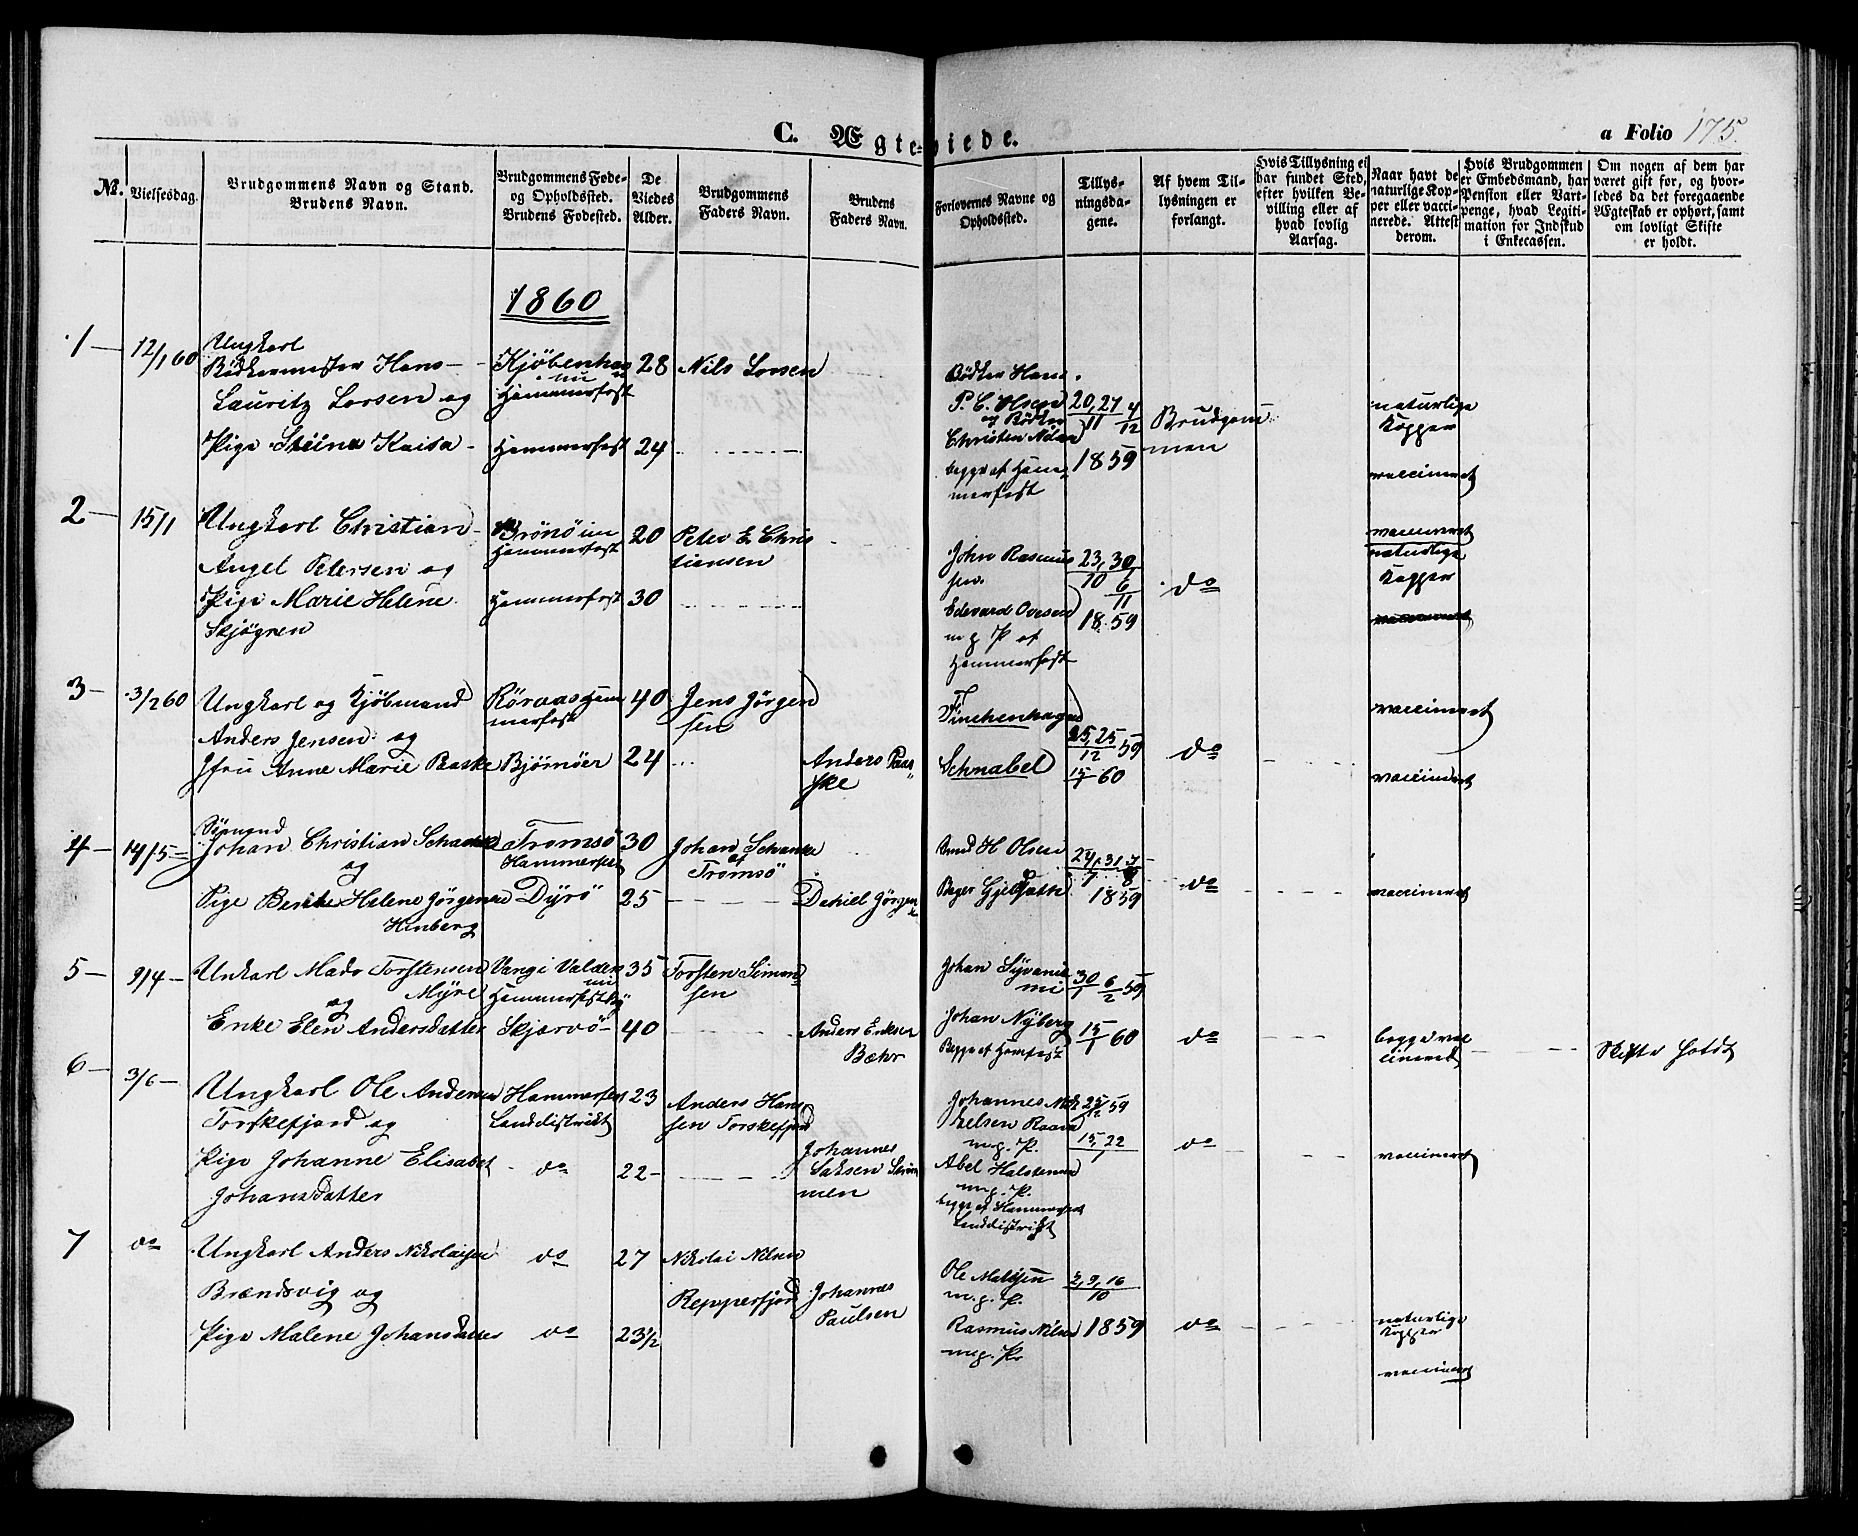 C. Ægteviede.
a Folio 175.
No. Vielsesdag.
Brudgommens Navn og Stand.
Brudens Navn.
Brudgommens Føde-
og Opholdssted.
Brudens Fødested.
De
Viedes
Alder.
Brudgommens
Faders Navn.
Brudens
Faders Navn.
Forlovernes Navne og
Opholdssted.
Tillys-
ningsda-
gene.
Af hvem Til-
lysningen er
forlangt.
Hvis Tillysning ei
har fundet Sted,
efter hvilken Be-
villing eller af
hvad lovlig
Aarsag.
Naar havt de
naturlige Kop-
per eller vacci-
nerede. Attest
derom.
Hvis Brudgommen
er Embedsmand, har
Pension eller Vart-
penge, hvad Legiti-
mation for Indskud
i Enkecassen.
Om nogen af dem har
været gift før, og hvor-
ledes da det foregaaende
Ægteskab er ophørt, samt
om lovligt Skifte
er holdt.
1860
1 12/1 60
Ungkarl
Bødkermester Hans
Lauritz Larsen og
Pige Steina Kaisa
Kjøbenhavn
nu
Hammerfest
Hammerfest
28
24
Nils Larsen
Bødker Hans
P. C. Olsen
og Bødker
Christen Nilsen
begge af Ham-
merfest
20, 27/11 4/12
1859
Brudgom
men
naturlige
Kopper
vaccineret
2 15/1
Ungkarl Christian
Angel Petersen og
Pige Marie Helene
Skjögren
Brönö nu
Hammerfest
Hammerfest
20
30
Peter E. Chris
tiensen
John Rasmus
sen
Edevard Ovesen
m g P af
Hammerfest
23, 30/10 6/11
1859
do
vaccineret
naturlige
Kopper
vaccineret
3 3/2 60
Ungkarl og Kjøbmand
Anders Jensen og
Jfru Anne Marie Baaske
Röraas Ham
merfest
Bjørnöer
40
24
Jens Jørgen
sen
Anders Baa
ske
Finchenhagen
Schnabel
25/12 59
15/1 60
do
vaccineret
vaccineret
4 14/5
Sömand
Johan Christian Schanke
og
Pige Berithe Helene Jörgensen
Hinberg
Tromsö
Hammerfest
Dyrö
30
25
Johan Schanke
af
Tromsö
Daniel Jørgen
H Olsen
Bager
24, 31/7 7/8
1859
do
vaccineret
5 9/4
Unkarl Mads Torstensen
og Myre
Enke Elen Andersdatter
Vang i Valders
nu
Hammerfest By
Skjærvö
35
40
Torsten Simon
sen
Anders Eriksen
Bæhr
Johan Nyberg
Begge af Hamfest
30/1 6/2 59
15/1 60
do
begge vac
cineret
Skifte holdt
6 3/6
Ungkarl Ole Andersen
Torskefjord og
Pige Johanne Elisabet
Johansdatter
Hammerfest
Landdistrikt
do
23
22
Anders Han
sen Torskefjord
Johannes
Saksen
men
Johannes Mik
kelsen
m. g. P.
Abel Halstensen
m. g. P.
begge af Hammerfest
Landdistrikt
25/12 59
15, 22/1
do
vaccineret
7 do
Ungkarl Anders Nikolaisen
Brændsvig og
Pige Malene Johansdatter
do
do
27
23 1/2
Nikolai Nilsen
Repperfjord
Johannes
Paulsen
Ole Mathisen
m. g. P.
Rasmus Nilsen
m. g. P.
2, 9, 16/10
1859
do
naturlige
Kopper
vaccineret